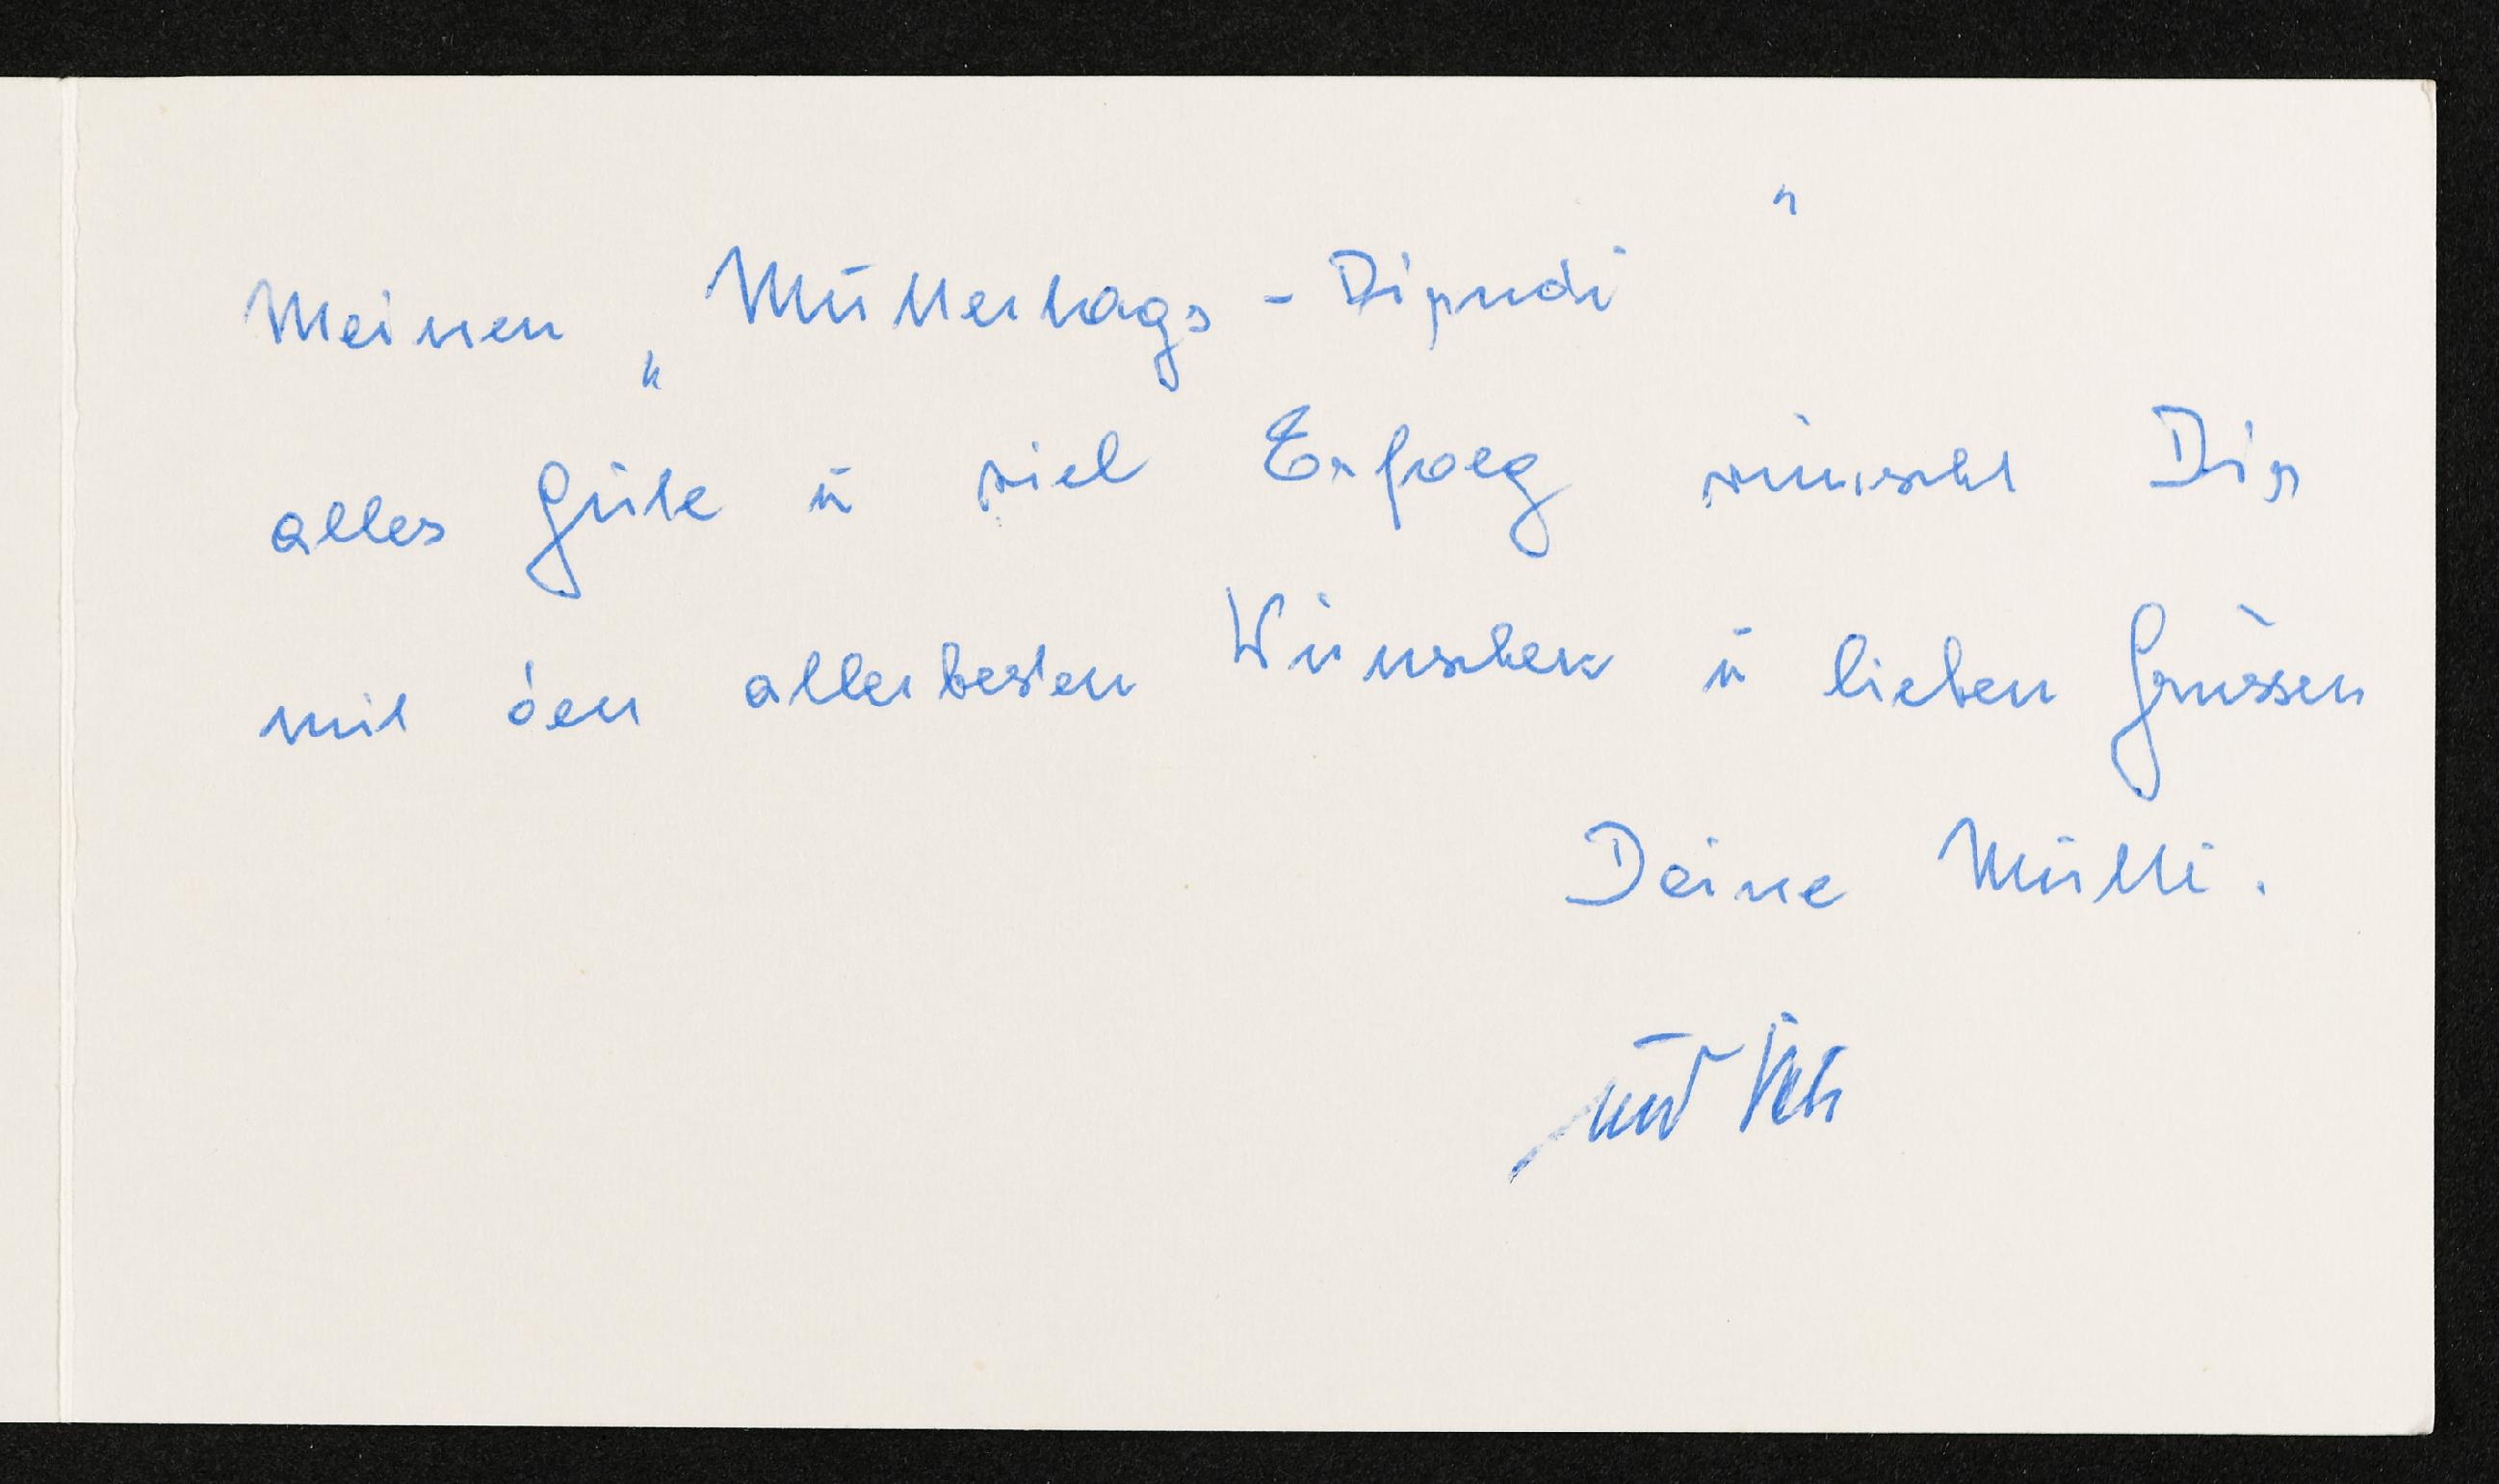 Meinen „Muttertags - Dirndi"
alles Gute ū viel Erfolg wünscht Dir
mit den allerbesten Wünschen ū lieben Grüssen
Deine Mutti.
und